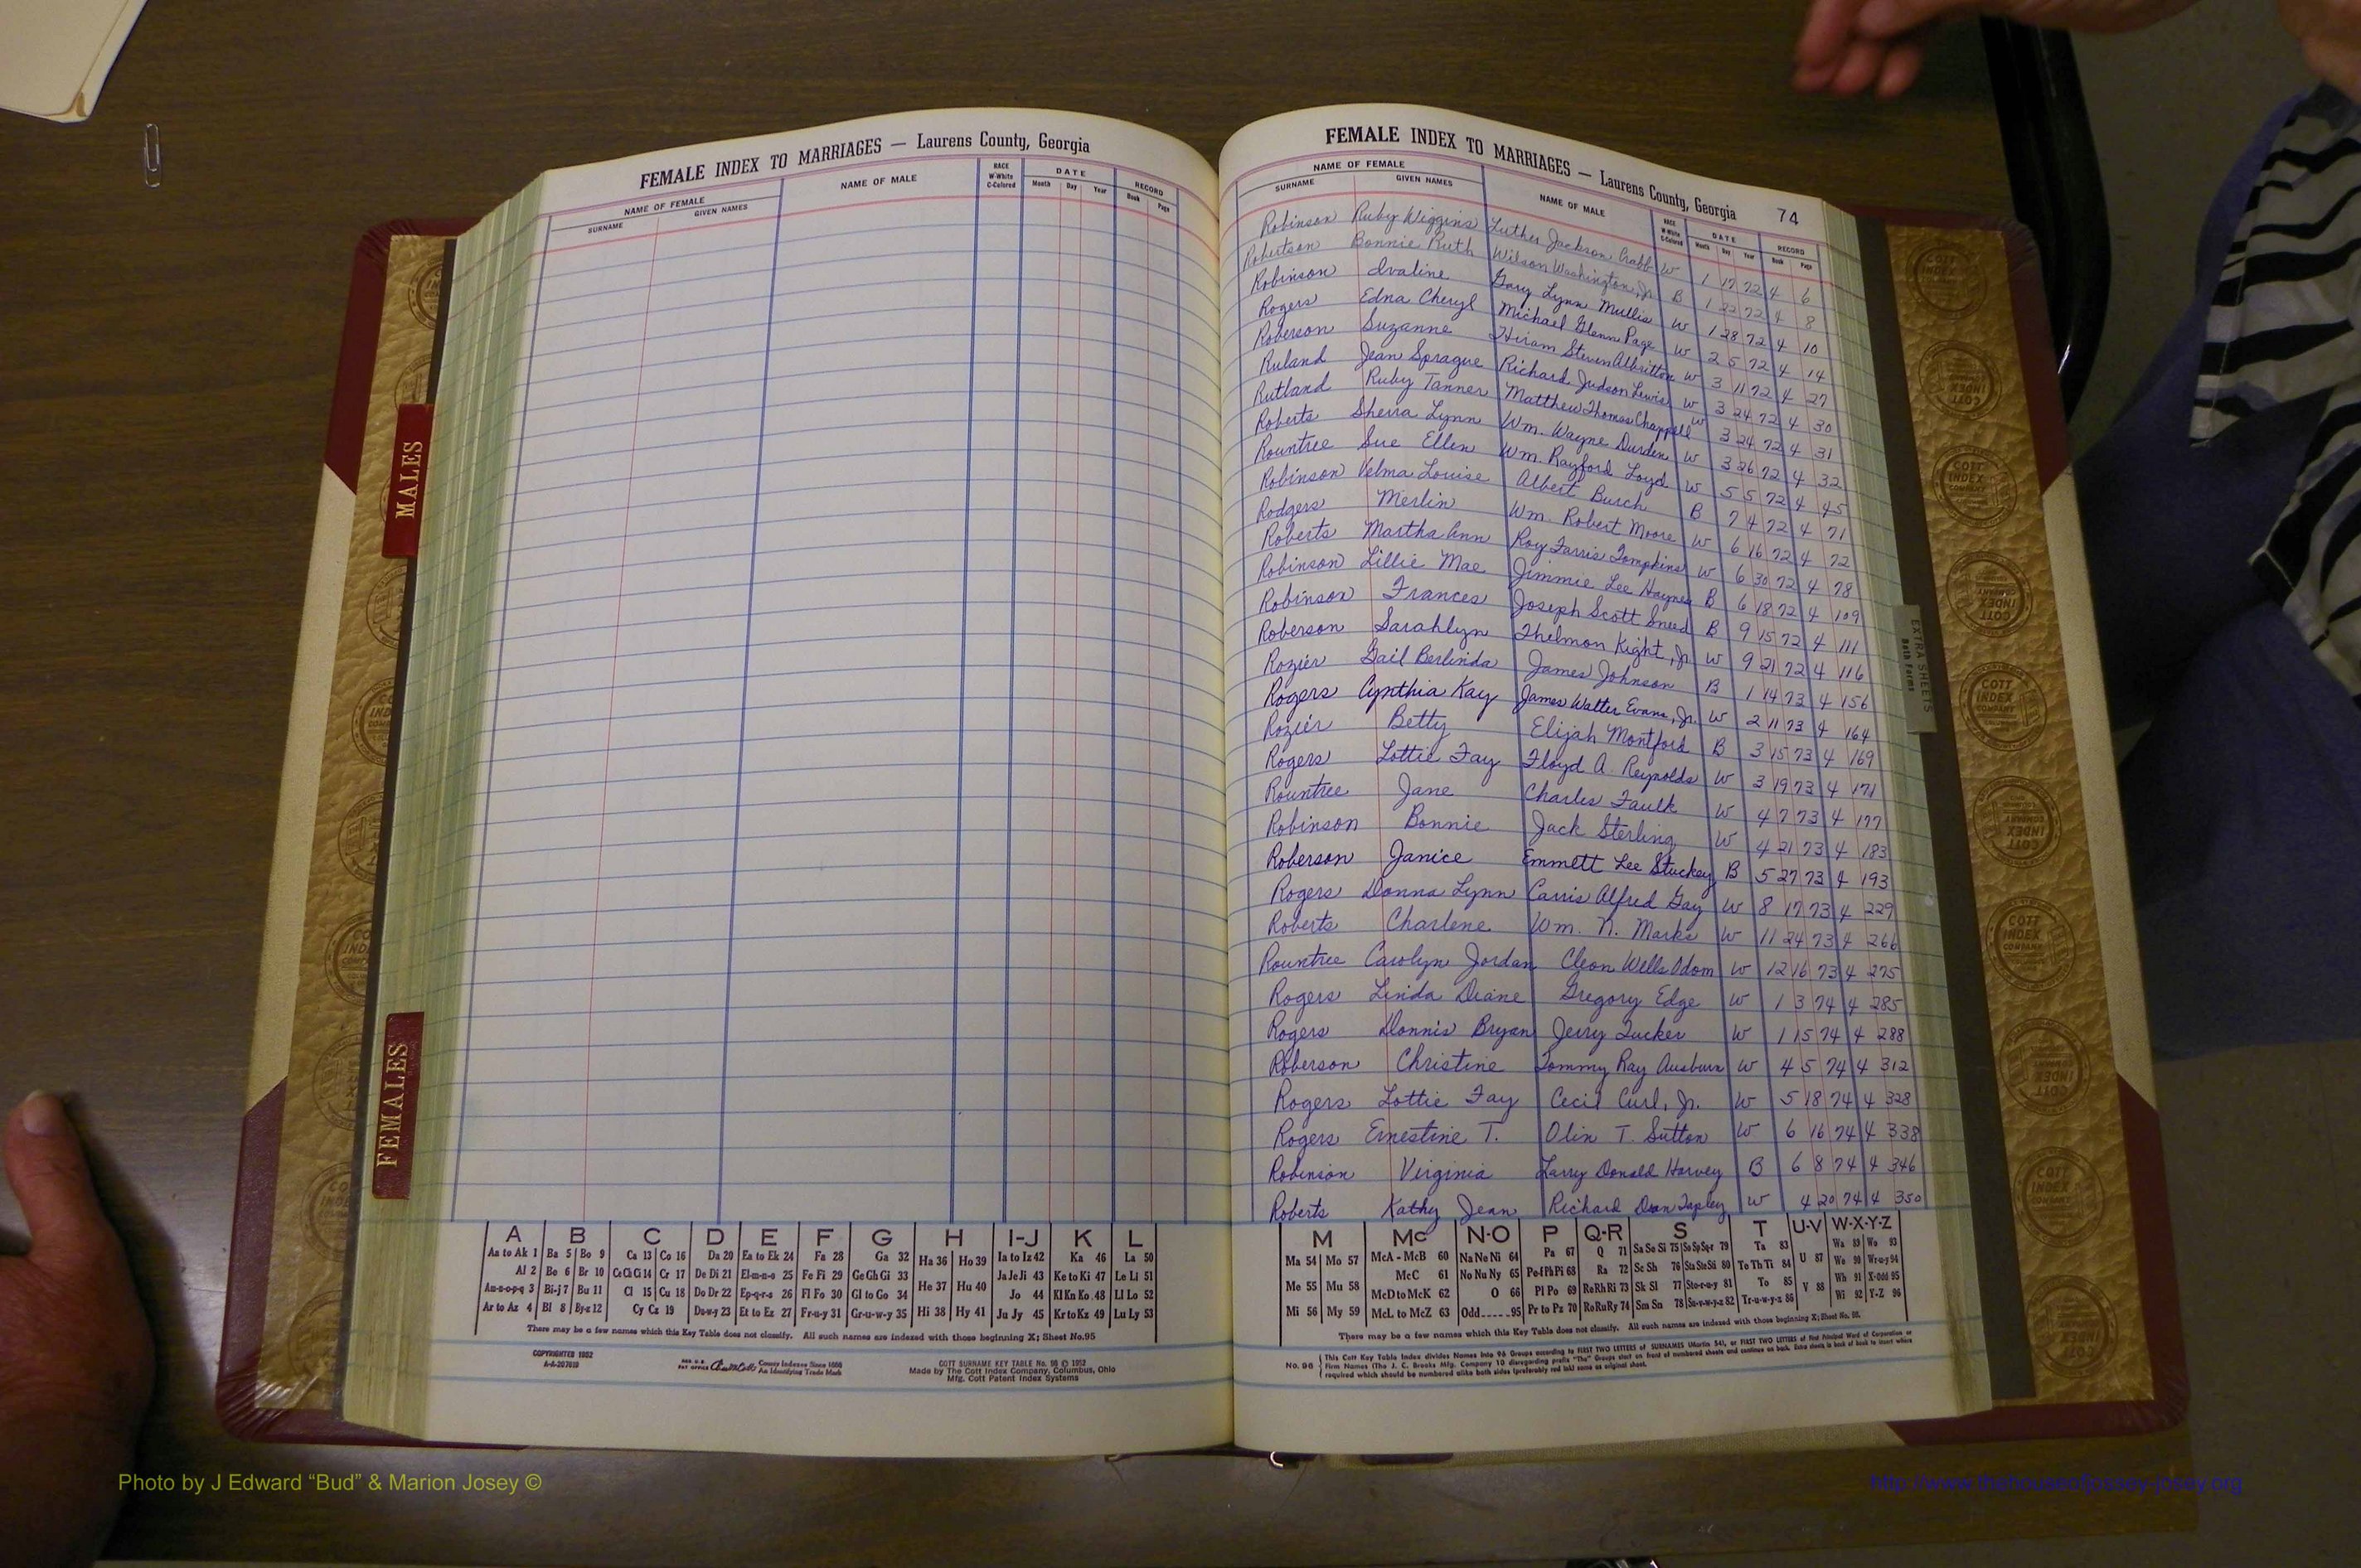 FEMALE INDEX TO MARRIAGES — Laurens County, Georgia
NAME OF FEMALE
SURNAME GIVEN NAMES
NAME OF MALE
RACE
W-White
C-Colored
DATE
Month Day Year
RECORD
Book Page
MALES
FEMALES
FEMALE INDEX TO MARRIAGES — Laurens County, Georgia 74
NAME OF FEMALE
SURNAME GIVEN NAMES
NAME OF MALE
RACE
W-White
C-Colored
DATE
Month Day Year
RECORD
Book Page
Robinson Ruby Wiggins Luther Jackson Crabb W 1 17 72 4 6
Robertson Bonnie Ruth Wilson Washington, Jr. B 1 22 72 4 8
Robinson Ivaline Gary Lynn Mullis W 1 28 72 4 10
Rogers Edna Cheryl Michael Glenn Page W 2 5 72 4 14
Roberson Suzanne Hiram Steven Albritton W 3 11 72 4 27
Ruland Jean Sprague Richard Judson Lewis W 3 24 72 4 30
Rutland Ruby Tanner Matthew Thomas Chappell W 3 24 72 4 31
Roberts Sherra Lynn Wm. Wayne Durden W 3 26 72 4 32
Rountree Sue Ellen Wm. Rayford Loyd W 5 5 72 4 45
Robinson Velma Louise Albert Burch B 7 4 72 4 71
Rodgers Merlin Wm. Robert Moore W 6 16 72 4 72
Roberts Martha Ann Roy Farris Tompkins W 6 30 72 4 78
Robinson Lillie Mae Jimmie Lee Haynes B 6 18 72 4 109
Robinson Frances Joseph Scott Sneed B 9 15 72 4 111
Roberson Sarahlyn Thelmon Kight, Jr. W 9 21 72 4 116
Rozier Gail Berlinda James Johnson B 1 14 73 4 156
Rogers Cynthia Kay James Walter Evans, Jr. W 2 11 73 4 164
Rozier Betty Elijah Montford B 3 15 73 4 169
Rogers Lottie Fay Floyd A. Reynolds W 3 19 73 4 171
Rountree Jane Charles Faulk W 4 7 73 4 177
Robinson Bonnie Jack Sterling W 4 21 73 4 183
Roberson Janice Emmett Lee Stuckey B 5 27 73 4 193
Rogers Donna Lynn Carris Alfred Gay W 8 17 73 4 229
Roberts Charlene Wm. N. Marks W 11 24 73 4 266
Rountree Carolyn Jordan Cleon Wells Odom W 12 16 73 4 275
Rogers Linda Diane Gregory Edge W 1 3 74 4 285
Rogers Donnis Bryan Jerry Tucker W 1 15 74 4 288
Roberson Christine Tommy Ray Ausburn W 4 5 74 4 312
Rogers Lottie Fay Cecil Curl, Jr. W 5 18 74 4 328
Rogers Ernestine T. Olin T. Sutton W 6 16 74 4 338
Robinson Virginia Larry Donald Harvey B 6 8 74 4 346
Roberts Kathy Jean Richard Dean Tapley W 4 20 74 4 350
EXTRA SHEETS
Both Forms
COTT INDEX COMPANY
A B C D E F G H I-J K L
Aa to Ak 1 Ba 5 Bo 9 Ca 13 Co 16 Da 20 Ea to Ek 24 Fa 28 Ga 32 Ha 36 Ho 39 Ia to Iz 42 Ka 46 La 50
Al 2 Be 6 Br 10 Ce Ch Ci 14 Cr 17 De Di 21 El-m-n-o 25 Fe Fi 29 Ge Gh Gi 33 He 37 Hu 40 Ja Je Ji 43 Ke to Ki 47 Le Li 51
Am-n-o-p-q 3 Bi-j 7 Bu 11 Cl 15 Cu 18 Do Dr 22 Ep-q-r-s 26 Fl Fo 30 Gl to Go 34 Jo 44 Kl Kn Ko 48 Ll Lo 52
Ar to Az 4 Bl 8 By-z 12 Cy Cz 19 Du-w-y 23 Et to Ez 27 Fr-u-y 31 Gr-u-w-y 35 Hi 38 Hy 41 Ju Jy 45 Kr to Kz 49 Lu Ly 53
There may be a few names which this Key Table does not classify. All such names are indexed with those beginning X; Sheet No. 95
COPYRIGHTED 1952
County Indexes Since 1888
An Identifying Trade Mark
COTT SURNAME KEY TABLE No. 96 © 1952
Made by The Cott Index Company, Columbus, Ohio
Mfg. Cott Patent Index Systems
M Mc N-O P Q-R S T U-V W-X-Y-Z
Ma 54 Mo 57 McA - McB 60 Na Ne Ni 64 Pa 67 Q 71 Sa Se Si 75 So Sp Sq-r 79 Ta 83 U 87 Wa 89 Wo 93
Me 55 Mu 58 McC 61 No Nu Ny 65 Pe-f Ph Pi 68 Ra 72 Sc Sh 76 Sta Ste Sti 80 Te Th Ti 84 We 90 Wr-u-y 94
McD to McK 62 O 66 Pl Po 69 Re Rh Ri 73 Sk Sl 77 Sto-r-u-y 81 To 85 V 88 Wh 91 X-Odd 95
Mi 56 My 59 McL to McZ 63 Odd 95 Pr to Pz 70 Ro Ru Ry 74 Sm Sn 78 Su-v-w-y-z 82 Tr-u-w-y-z 86 Wi 92 Y-Z 96
There may be a few names which this Key Table does not classify. All such names are indexed with those beginning X; Sheet No. 95.
No. 96 This Cott Key Table Index divides Names into 96 Groups according to FIRST TWO LETTERS of SURNAMES (Martin 54), or FIRST TWO LETTERS of First Principal Word of Corporation or
Firm Names (The J. C. Brooks Mfg. Company 10 disregarding prefix "The" Groups start on front of numbered sheets and continue on back. Extra sheets in back of book to insert where
required which should be numbered alike both sides (preferably red ink) same as original sheet.
Photo by J Edward “Bud” & Marion Josey ©
http://www.thehouseofjossey-josey.org